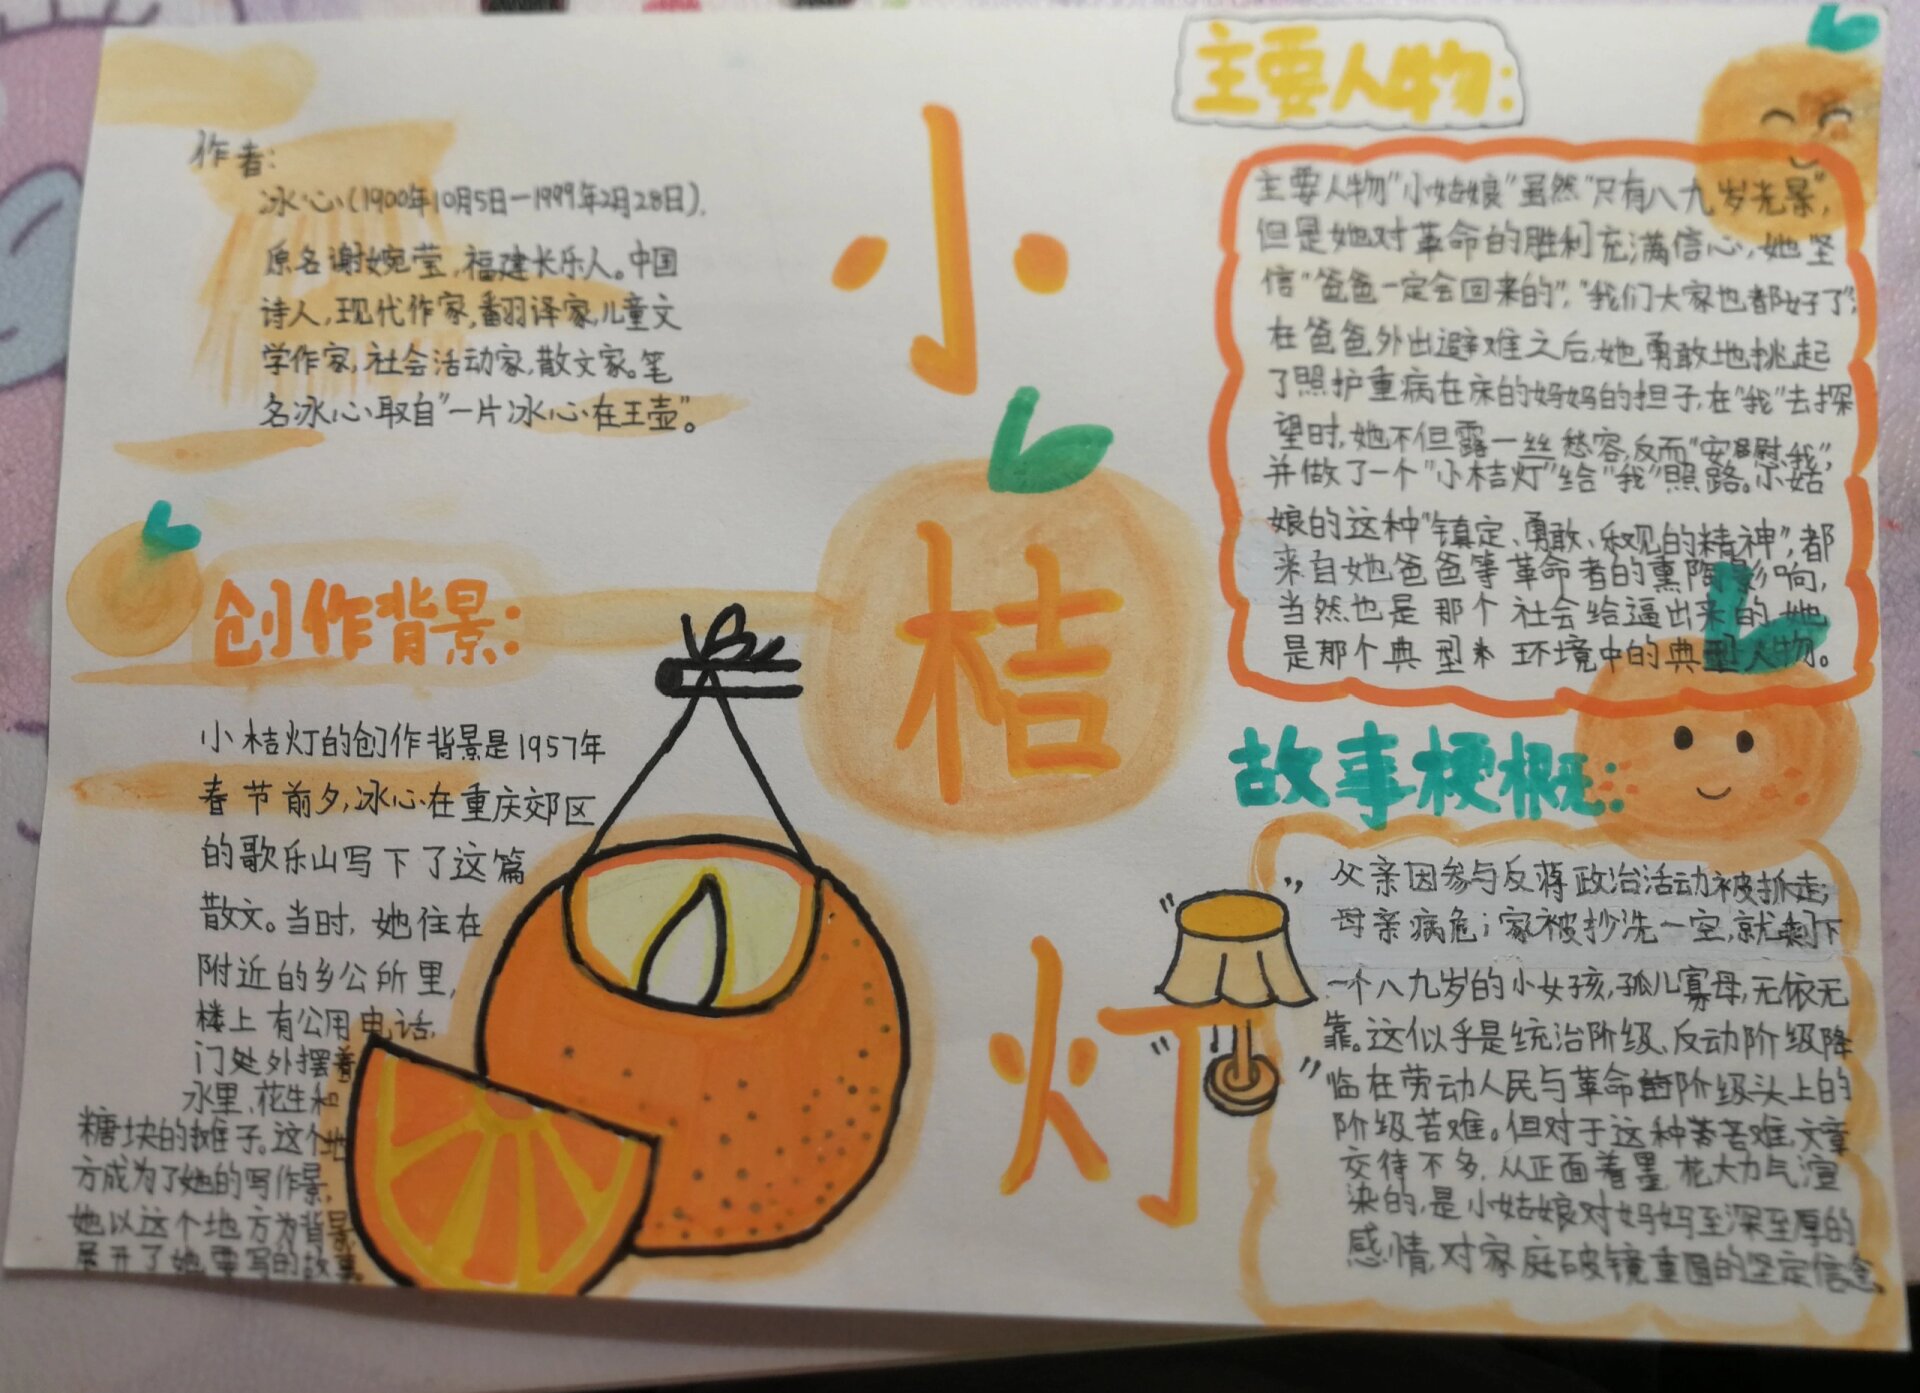 作者:
冰心(1900年10月5日—1999年2月28日),
原名谢婉莹,福建长乐人。中国
诗人,现代作家,翻译家,儿童文
学作家,社会活动家,散文家。笔
名冰心取自"一片冰心在玉壶"。
创作背景:
小桔灯的创作背景是1957年
春节前夕,冰心在重庆郊区
的歌乐山写下了这篇
散文。当时,她住在
附近的乡公所里,
楼上有公用电话,
门处外摆着
水里、花生和
糖块的摊子。这个地
方成为了她的写作景,
她以这个地方为背景
展开了她要写的故事。
小
桔
灯
主要人物:
主要人物"小姑娘"虽然"只有八九岁光景",
但是她对革命的胜利充满信心,她坚
信"爸爸一定会回来的","我们大家也都好了";
在爸爸外出避难之后,她勇敢地挑起
了照护重病在床的妈妈的担子,在"我"去探
望时,她不但露一丝愁容,反而"安慰我",
并做了一个"小桔灯"给"我"照路。小姑
娘的这种"镇定、勇敢、乐观的精神",都
来自她爸爸等革命者的熏陶影响,
当然也是那个社会给逼出来的她
是那个典型 环境中的典型人物。
故事梗概:
父亲因参与反蒋政治活动被抓走;
母亲病危;家被抄洗一空,就剩下
一个八九岁的小女孩,孤儿寡母,无依无
靠。这似乎是统治阶级、反动阶级降
临在劳动人民与革命的阶级头上的
阶级苦难。但对于这种苦难,文章
交待不多,从正面着墨,花大力气渲
染的,是小姑娘对妈妈至深至厚的
感情,对家庭破镜重圆的坚定信念